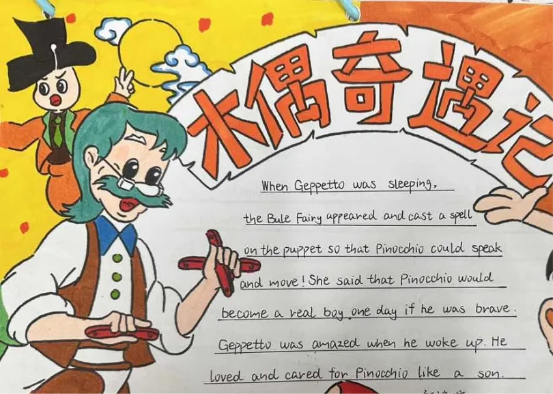 木偶奇遇记
When Geppetto was sleeping,
the Bule Fairy appeared and cast a spell
on the puppet so that Pinocchio could speak
and move! She said that Pinocchio would
become a real boy one day if he was brave.
Geppetto was amazed when he woke up. He
loved and cared for Pinocchio like a son.